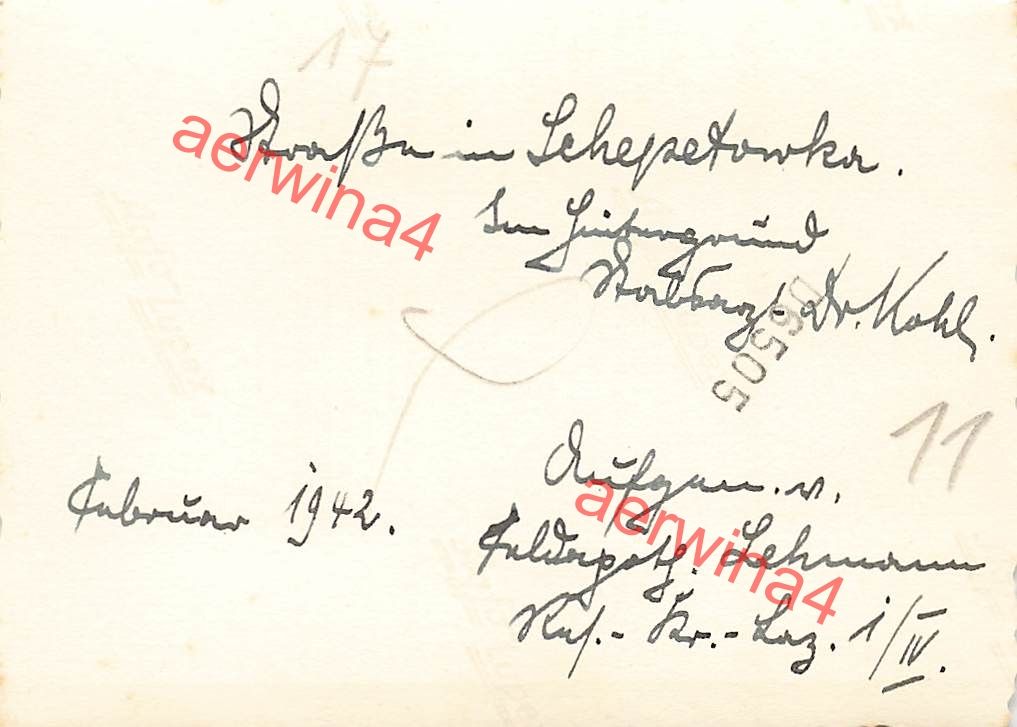 17
Straße in Schepetowka.
Im Hintergrund
Stabsarzt Dr. Kohl.
06505
11
Februar 1942.
Aufgen. v.
Feldapoth. Lehmann
Res.-Kr.-Laz. 1/IV.
aerwina4
aerwina4